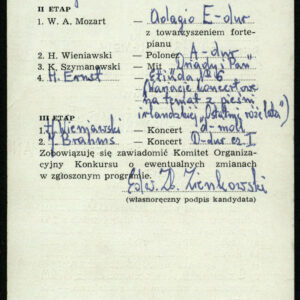 II ETAP
1. W. A. Mozart — Adagio E-dur
z towarzyszeniem forte-
pianu
2. H. Wieniawski — Polonez A-dur
3. K. Szymanowski — Mit „Driady i Pan"
4. H. Ernst Etiuda nr 6
(Wariacje koncertowe
na temat z pieśni
irlandzkiej „Ostatnia róża lata")
III ETAP
1. H. Wieniawski — Koncert d-moll
2. J. Brahms — Koncert D-dur cz. I
Zobowiązuję się zawiadomić Komitet Organiza-
cyjny Konkursu o ewentualnych zmianach
w zgłoszonym programie.
Edw. Z. Zienkowski
(własnoręczny podpis kandydata)